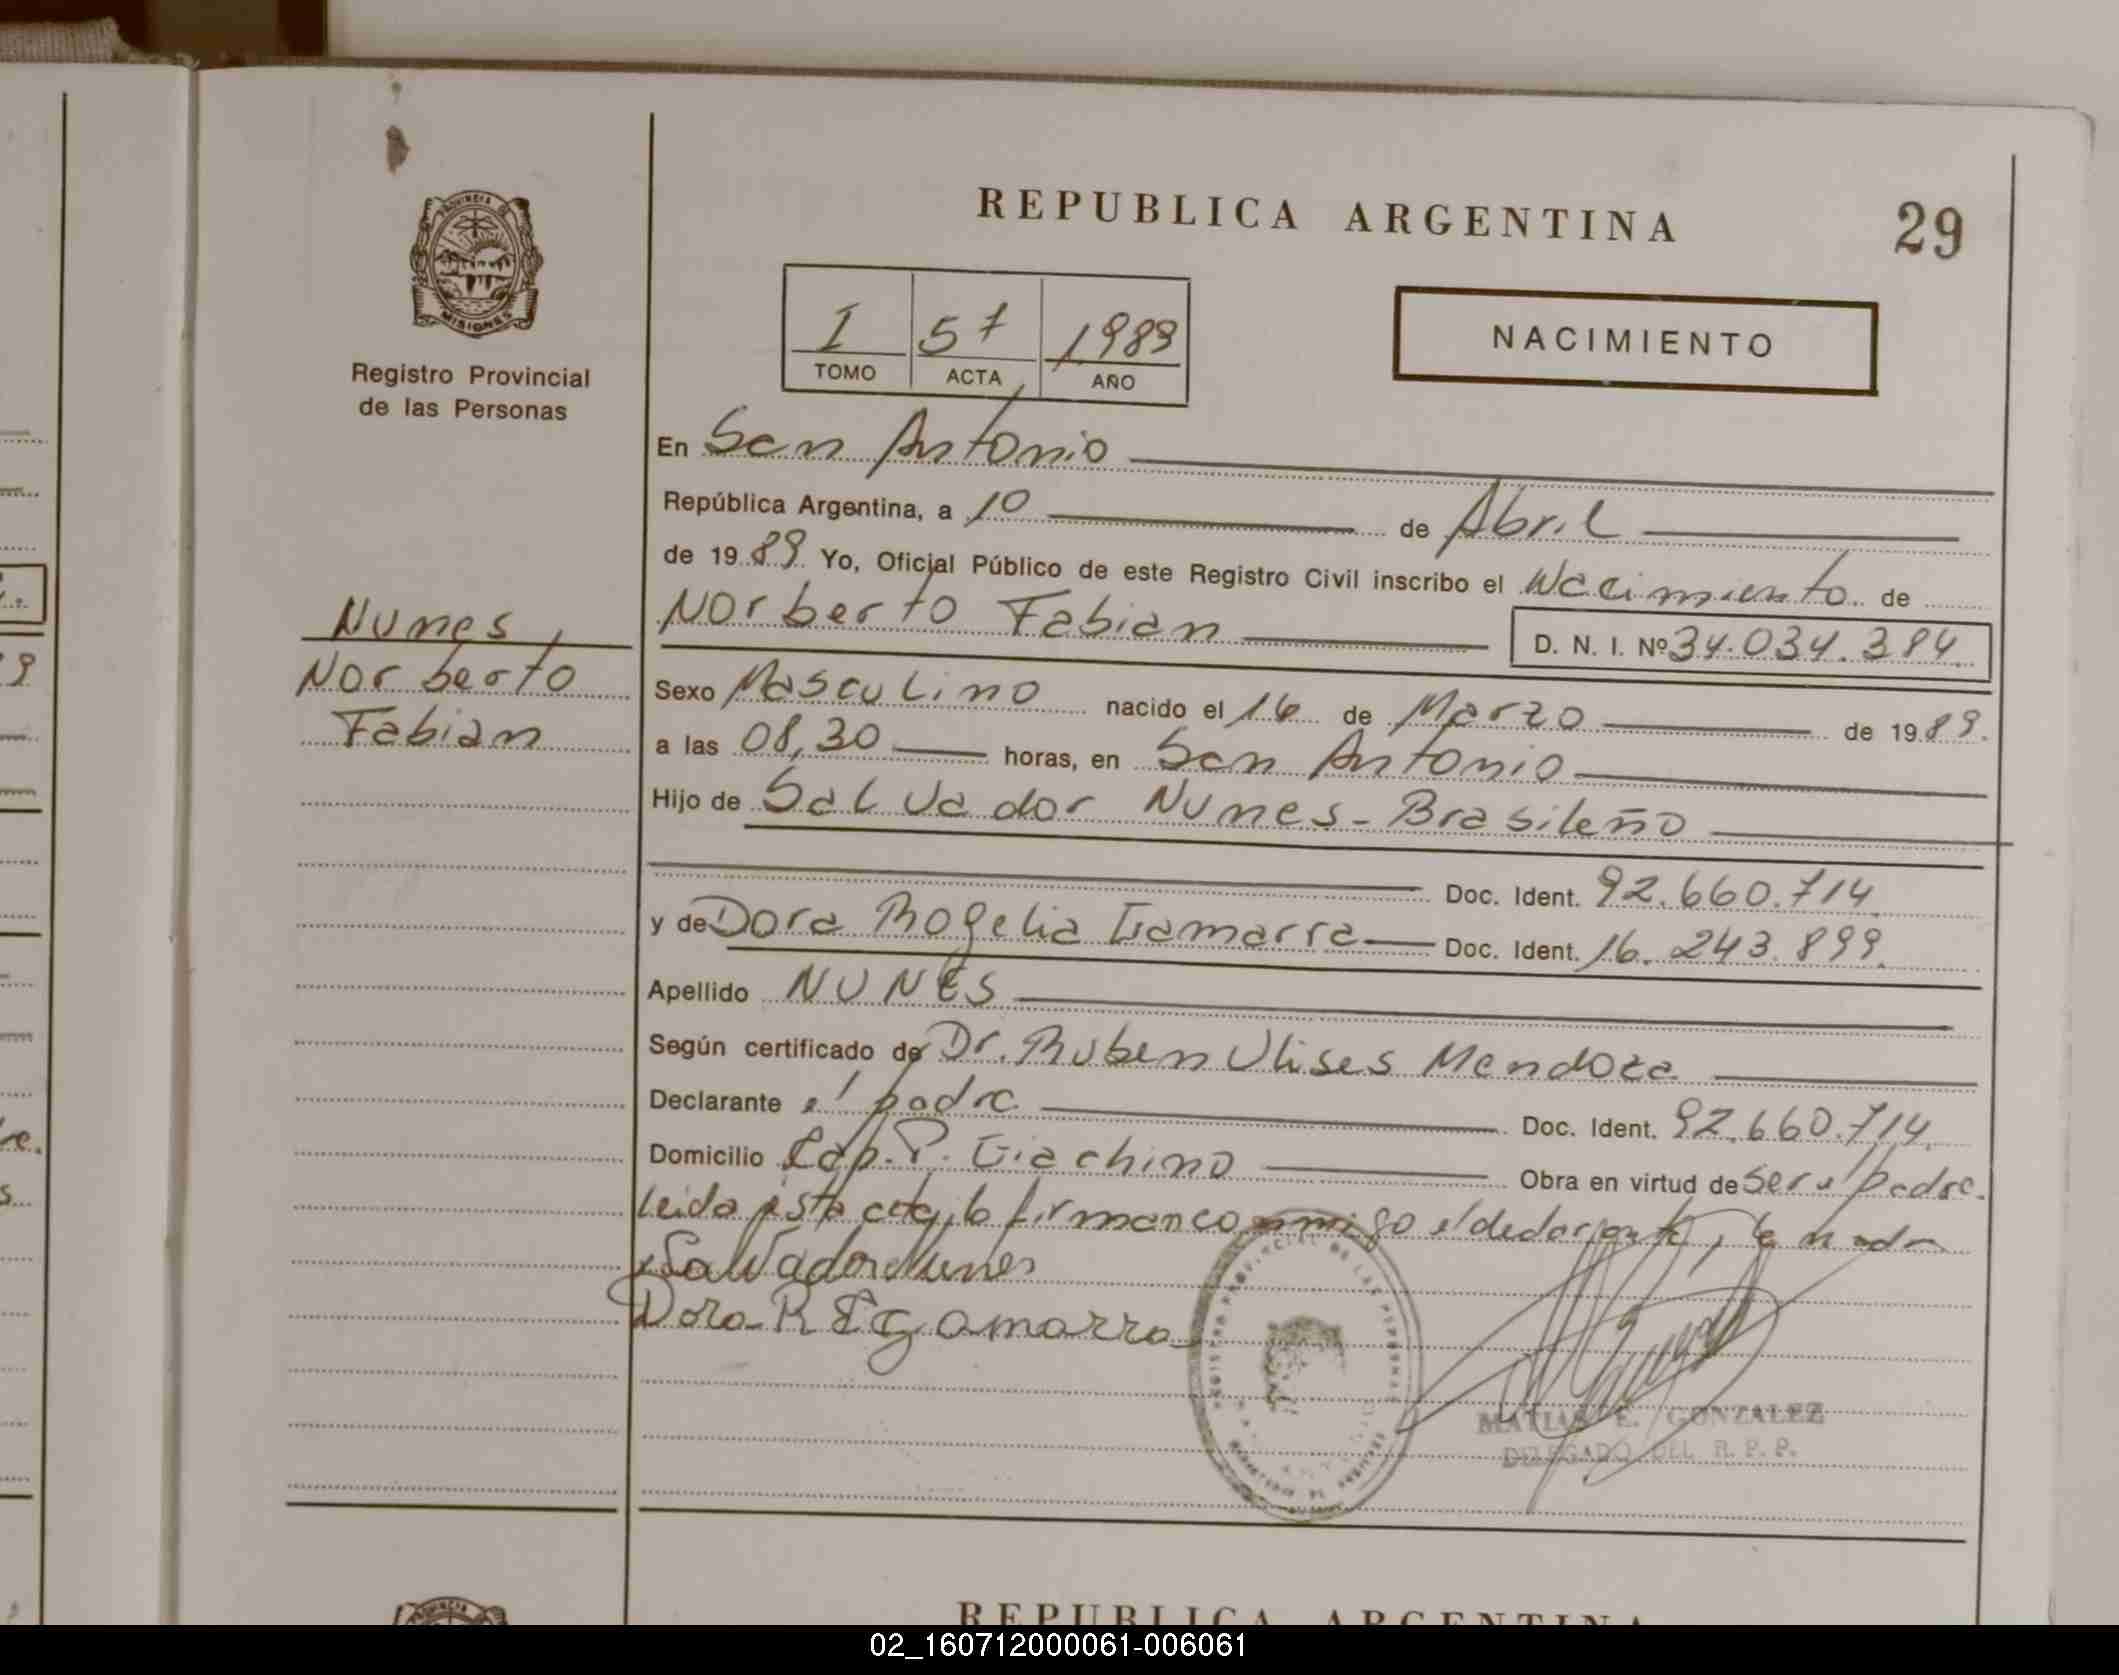 REPUBLICA ARGENTINA 29
PROVINCIA DE
MISIONES
Registro Provincial
de las Personas
I 57 1989
TOMO ACTA AÑO
NACIMIENTO
En San Antonio
República Argentina, a 10 de Abril
de 1989 Yo, Oficial Público de este Registro Civil inscribo el Nacimiento de
Norberto Fabian D. N. I. Nº 34.034.384
Nunes,
Norberto
Fabian
Sexo Masculino nacido el 16 de Marzo de 1989.
a las 08,30 horas, en San Antonio
Hijo de Salvador Nunes - Brasileño
Doc. Ident. 92.660.714
y de Dora Rogelia Gamarra Doc. Ident. 16.243.899.
Apellido NUNES
Según certificado de Dr. Ruben Ulises Mendoza
Declarante el padre Doc. Ident. 92.660.714
Domicilio Cap. P. Giachino Obra en virtud de ser el padre.
Leida esta acta, la firman conmigo el declarante, la madre
Salvador Nunes
Dora R Gamarra
MATIAS E. GONZALEZ
DELEGADO DEL R. P. P.
REPUBLICA ARGENTINA
02_160712000061-006061